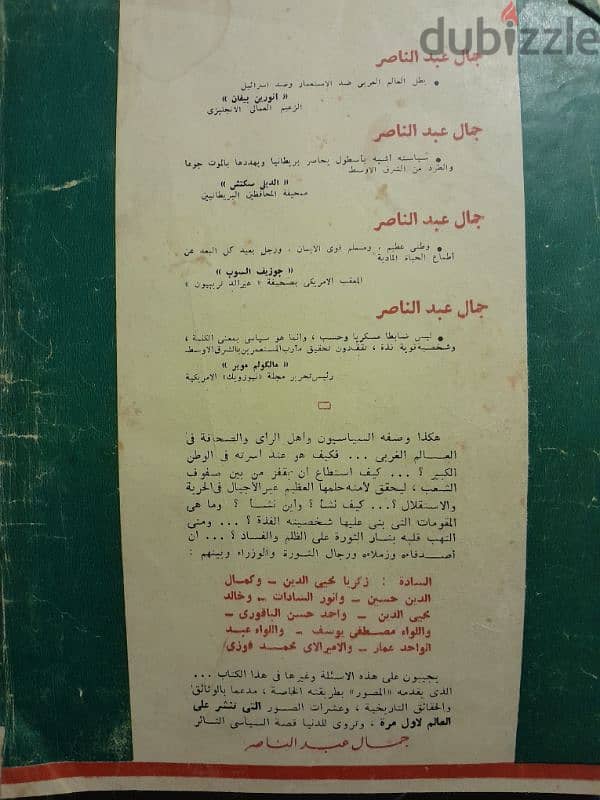 dubizzle
جمال عبد الناصر
● بطل العالم العربى ضد الاستعمار وضد اسرائيل
« انورين بيفان »
الزعيم العمالى الانجليزى
جمال عبد الناصر
● سياسته اشبه بأسطول يحاصر بريطانيا ويهددها بالموت جوعا
والطرد من الشرق الاوسط
« الديلى سكتش »
صحيفة المحافظين البريطانيين
جمال عبد الناصر
● وطنى عظيم ، ومسلم قوى الايمان ، ورجل بعيد كل البعد عن
اطماع الحياة المادية
« جوزيف السوب »
المعقب الامريكى بصحيفة « هيرالد تريبيون »
جمال عبد الناصر
● ليس ضابطا عسكريا وحسب ، وانما هو سياسى بمعنى الكلمة ،
وشخصية قوية فذة ، تقف دون تحقيق مآرب المستعمرين بالشرق الاوسط
« مالكولم موير »
رئيس تحرير مجلة «نيوزويك» الامريكية
هكذا وصفه السياسيون وأهل الرأى والصحافة فى
العالم الغربى ... فكيف هو عند أسرته فى الوطن
الكبير ؟ ... كيف استطاع أن يقفز من بين صفوف
الشعب ، ليحقق لأمته حلمها العظيم عبر الأجيال فى الحرية
والاستقلال ؟... كيف نشأ ؟ وأين نشأ ؟ وما هى
المقومات التى بنى عليها شخصيته الفذة ؟ ... ومتى
التهب قلبه بنار الثورة على الظلم والفساد ؟ ... ان
أصدقاءه وزملاءه ورجال الثورة والوزراء وبينهم :
السادة : زكريا محيى الدين ــ وكمال
الدين حسين ــ وانور السادات ــ وخالد
محيى الدين ــ واحمد حسن الباقورى ــ
واللواء مصطفى يوسف ــ واللواء عبد
الواحد عمار ــ والاميرالاى محمد فوزى/
يجيبون على هذه الاسئلة وغيرها فى هذا الكتاب ...
الذى يقدمه «المصور» بطريقته الخاصة ، مدعما بالوثائق
والحقائق التاريخية ، وعشرات الصور التى تنشر على
العالم لاول مرة ، وتروى للدنيا قصة السياسى الثائر
جمال عبد الناصر